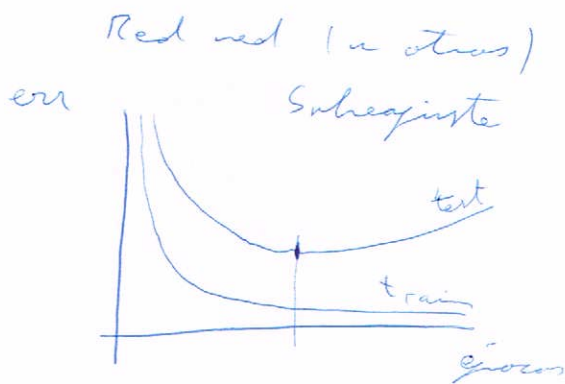 Red red (u otras)
err
Sobreajuste
test
train
épocas